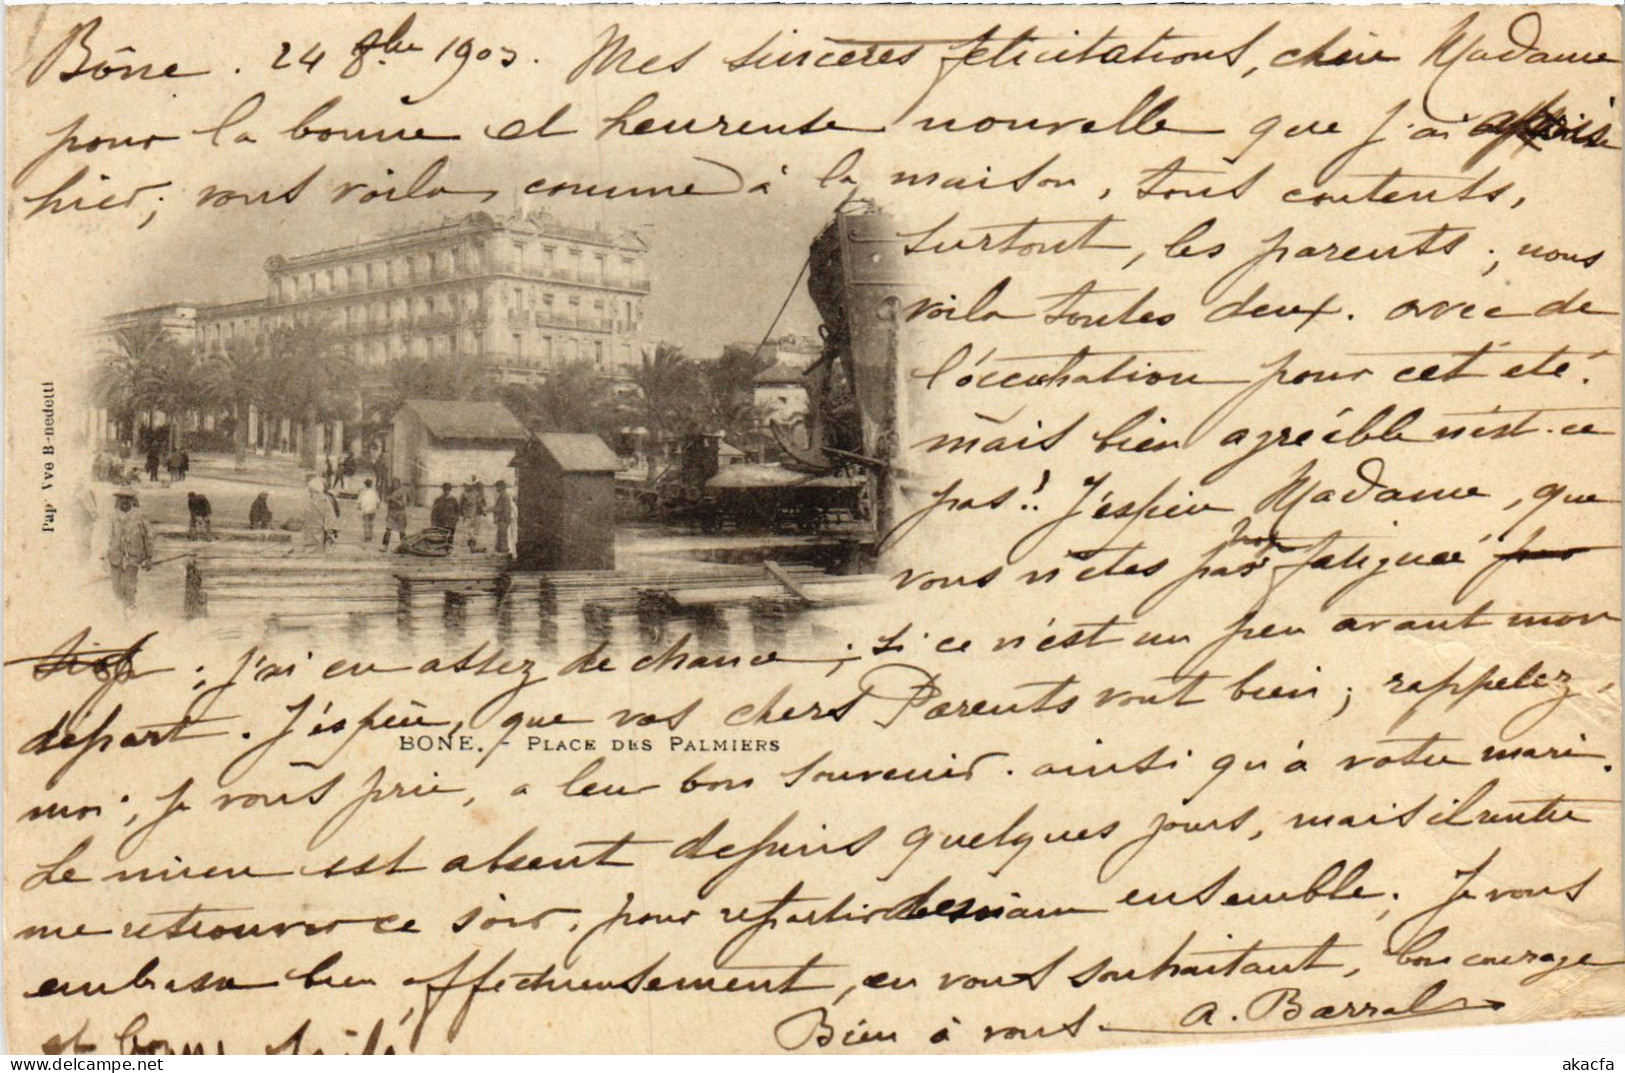 Bône. 24 8bre 1903. Mes sincères félicitations, chère Madame
pour la bonne et heureuse nouvelle que j'ai apprise
hier; vous voila, comme à la maison, tous contents,
surtout, les parents; nous
voila toutes deux. avec de
l'occupation pour cet été.
mais bien agréable n'est-ce
pas!! J'espère Madame, que
vous n'êtes pas trop fatiguée pas
; j'ai eu assez de chance; si ce n'est un peu avant mon
départ. J'espère, que vos chers Parents vont bien; rappelez,
BONE. - PLACE DES PALMIERS
moi; je vous prie, a leur bon souvenir. ainsi qu'à votre mari.
Le mien est absent depuis quelques jours, mais il rentre
me retrouver ce soir, pour repartir demain ensemble; Je vous
embrasse bien affectueusement, en vous souhaitant, bon courage
et bonne
Bien à vous. A. Barral
Pap Vve B-nedetti
akacfa.com